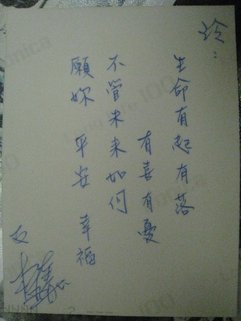 玲：
生命有起有落
有喜有憂
不管未來如何
願妳 平安 幸福